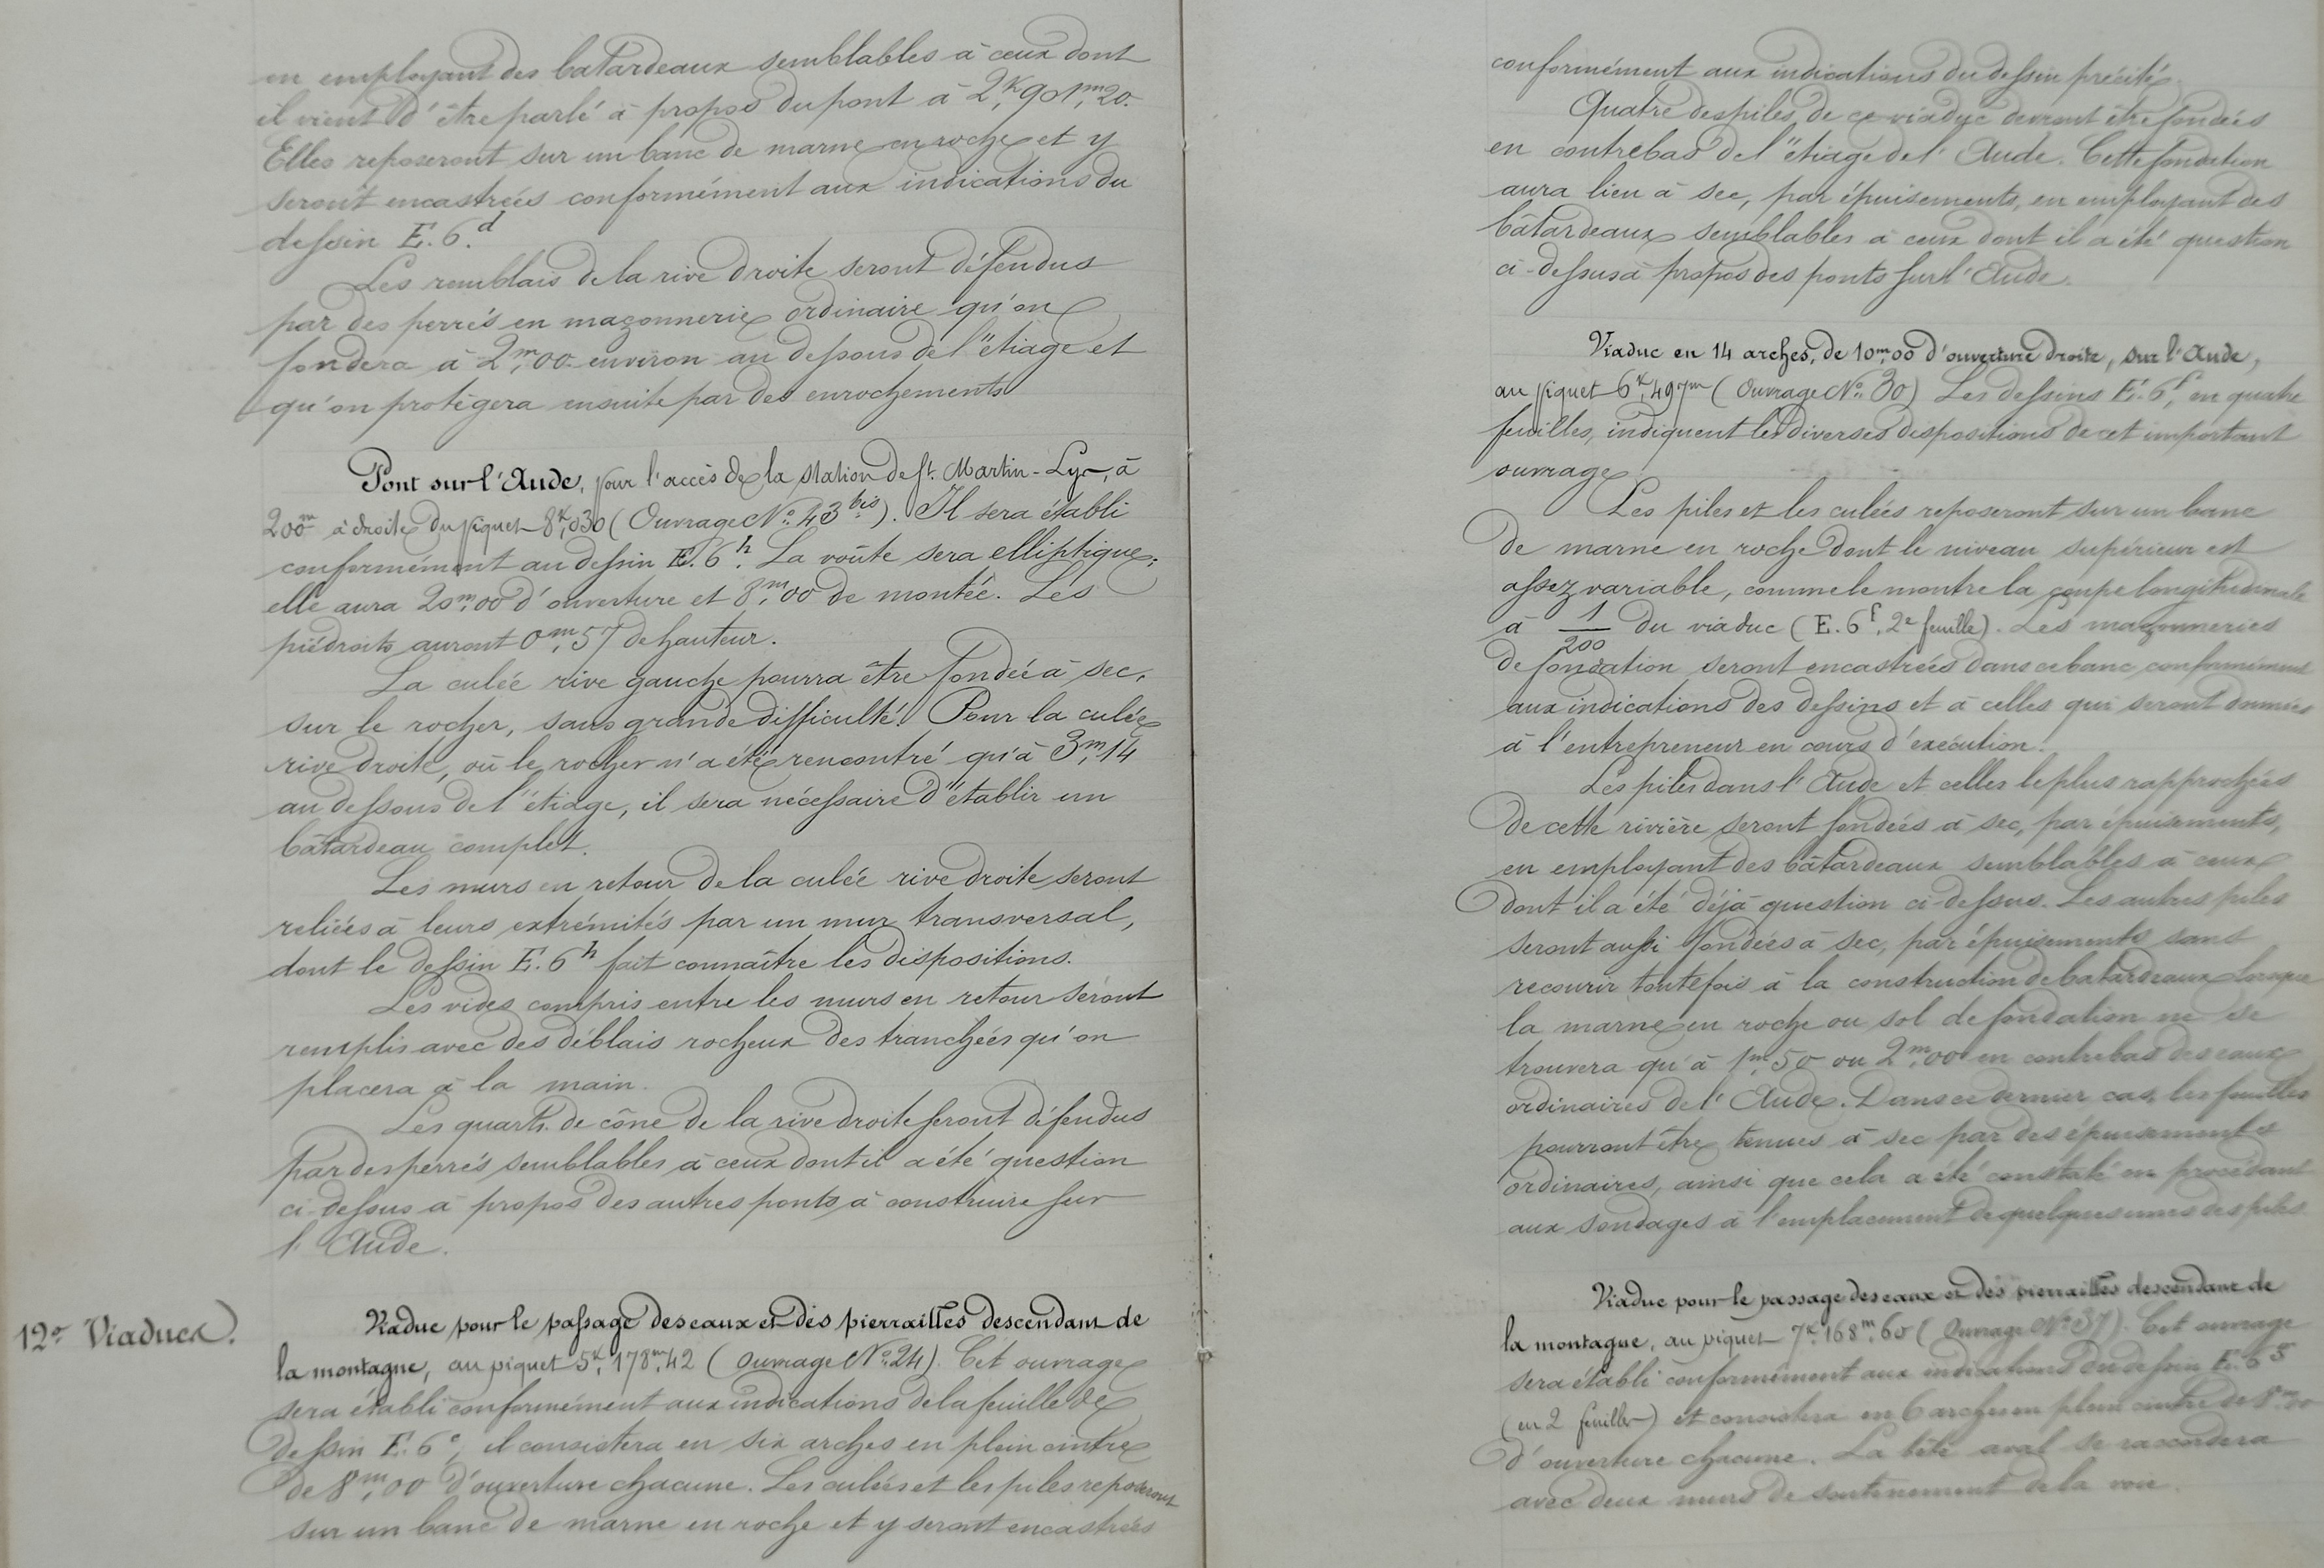 en employant des batardeaux semblables à ceux dont
il vient d'être parlé à propos du pont à 2.ᴷ901.ᵐ20.
Elles reposeront sur un banc de marne en roche et y
seront encastrées conformément aux indications du
dessin E.6.ᵈ
Les remblais de la rive droite seront défendus
par des perrés en maçonnerie ordinaire qu'on
fondera à 2.ᵐ00 environ au dessous de l'étiage et
qu'on protègera ensuite par des enrochements
Pont sur l'Aude, pour l'accès de la station de St. Martin-Lys, à
200ᵐ à droite du piquet 8.ᴷ030 (Ouvrage Nº 43 bis). Il sera établi
conformément au dessin E.6.ʰ La voûte sera elliptique;
elle aura 20ᵐ,00 d'ouverture et 8.ᵐ00 de montée. Les
piédroits auront 0.ᵐ57 de hauteur.
La culée rive gauche pourra être fondée à sec,
sur le rocher, sans grande difficulté. Pour la culée
rive droite, où le rocher n'a été rencontré qu'à 3.ᵐ14
au dessous de l'étiage, il sera nécessaire d'établir un
bâtardeau complet.
Les murs en retour de la culée rive droite seront
reliés à leurs extrémités par un mur transversal,
dont le dessin E.6ʰ fait connaître les dispositions.
Les vides compris entre les murs en retour seront
remplis avec des déblais rocheux des tranchées qu'on
placera à la main.
Les quarts de cône de la rive droite seront défendus
par des perrés semblables à ceux dont il a été question
ci-dessus à propos des autres ponts à construire sur
l'Aude.
12º Viaducs.
Viaduc pour le passage des eaux et des pierrailles descendant de
la montagne, au piquet 5.ᴷ178.ᵐ42 (Ouvrage Nº 24). Cet ouvrage
sera établi conformément aux indications de la feuille de
dessin E.6ᵉ, il consistera en six arches en plein cintre
de 8.ᵐ00 d'ouverture chacune. Les culées et les piles reposeront
sur un banc de marne en roche et y seront encastrées
conformément aux indications du dessin précité.
Quatre des piles de ce viaduc devront être fondées
en contrebas de l'étiage de l'Aude. Cette fondation
aura lieu à sec, par épuisements, en employant des
bâtardeaux semblables à ceux dont il a été question
ci-dessus à propos des ponts sur l'Aude.
Viaduc en 14 arches, de 10ᵐ,00 d'ouverture droite, sur l'Aude,
au piquet 6.ᴷ497ᵐ (Ouvrage Nº 30) Les dessins E.6ᶠ, en quatre
feuilles, indiquent les diverses dispositions de cet important
ouvrage.
Les piles et les culées reposeront sur un banc
de marne en roche dont le niveau supérieur est
assez variable, comme le montre la coupe longitudinale
à 1/200 du viaduc (E.6ᶠ, 2ᵉ feuille). Les maçonneries
de fondation seront encastrées dans ce banc conformément
aux indications des dessins et à celles qui seront données
à l'entrepreneur en cours d'exécution.
Les piles dans l'Aude et celles le plus rapprochées
de cette rivière seront fondées à sec, par épuisements,
en employant des bâtardeaux semblables à ceux
dont il a été déjà question ci-dessus. Les autres piles
seront aussi fondées à sec, par épuisements sans
recourir toutefois à la construction de batardeaux lorsque
la marne en roche ou sol de fondation ne se
trouvera qu'à 1ᵐ,50 ou 2.ᵐ00 en contrebas des eaux
ordinaires de l'Aude. Dans ce dernier cas, les fouilles
pourront être tenues à sec par des épuisements
ordinaires, ainsi que cela a été constaté en procédant
aux sondages à l'emplacement de quelques unes des piles.
Viaduc pour le passage des eaux et des pierrailles descendant de
la montagne, au piquet 7.ᴷ168.ᵐ60 (Ouvrage Nº 37). Cet ouvrage
sera établi conformément aux indications du dessin E.6
(en 2 feuilles) et consistera en 6 arches en plein cintre de 8.ᵐ00
d'ouverture chacune. La tête aval se raccordera
avec deux murs de soutènement de la voie.